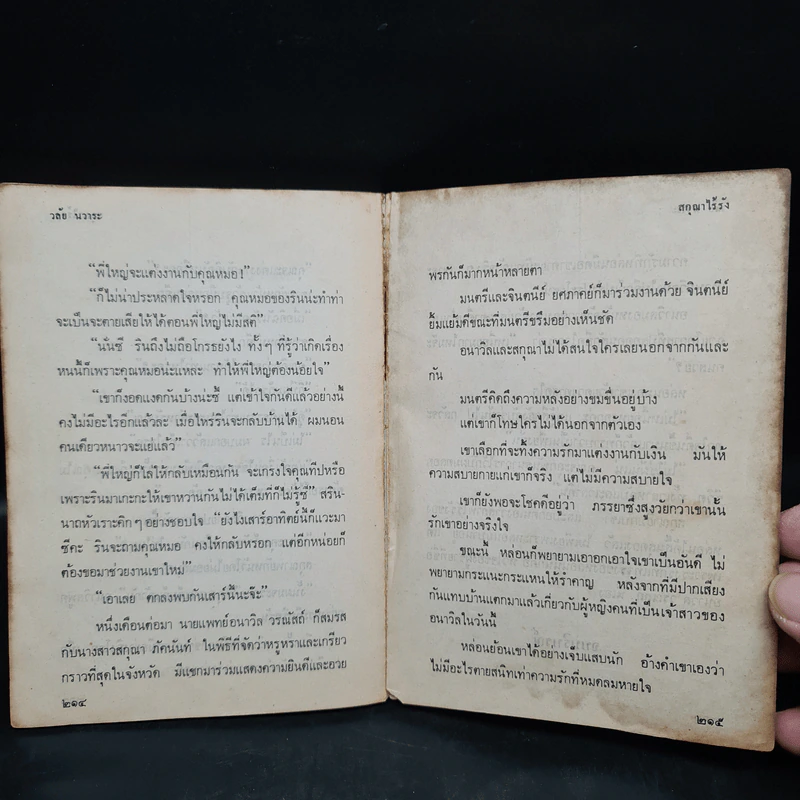 วลัย นวาระ
“พี่ใหญ่จะแต่งงานกับคุณหมอ!”
“ก็ไม่น่าประหลาดใจหรอก คุณหมอของรินน่ะทำท่า
จะเป็นจะตายเสียให้ได้ตอนพี่ใหญ่ไม่มีสติ”
“นั่นซี รินถึงไม่ถือโกรธยังไง ทั้งๆ ที่รู้ว่าเกิดเรื่อง
หนนี้ก็เพราะคุณหมอน่ะแหละ ทำให้พี่ใหญ่ต้องน้อยใจ”
“เขาก็งอดแงดกันบ้างน่ะซี่ แต่เข้าใจกันดีแล้วอย่างนี้
คงไม่มีอะไรอีกแล้วล่ะ เมื่อไหร่รินจะกลับบ้านได้ ผมนอน
คนเดียวหนาวจะแย่แล้ว”
“พี่ใหญ่ก็ไล่ให้กลับเหมือนกัน จะเกรงใจคุณทีปหรือ
เพราะรินมาเกะกะให้เขาหวานกันไม่ได้เต็มที่ก็ไม่รู้ซี่” สริน-
นาถหัวเราะคิกๆ อย่างชอบใจ “ยังไงเสาร์อาทิตย์นี้ก็แวะมา
ซีคะ รินจะถามคุณหมอ คงให้กลับหรอก แต่อีกหน่อยก็
ต้องขอมาช่วยงานเขาใหม่”
“เอาเลย ตกลงพบกันเสาร์นี้นะจ๊ะ”
หนึ่งเดือนต่อมา นายแพทย์อนาวิล วรณัสถ์ ก็สมรส
กับนางสาวสกุณา ภัคนันท์ ในพิธีที่จัดว่าหรูหราและเกรียว
กราวที่สุดในจังหวัด มีแขกมาร่วมแสดงความยินดีและอวย
๒๑๔
สกุณาไร้รัง
พรกันก็มากหน้าหลายตา
มนตรีและจินตนีย์ ยศภาคย์ก็มาร่วมงานด้วย จินตนีย์
ยิ้มแย้มดีขณะที่มนตรีขรึมอย่างเห็นชัด
อนาวิลและสกุณาไม่ได้สนใจใครเลยนอกจากกันและ
กัน
มนตรีคิดถึงความหลังอย่างขมขื่นอยู่บ้าง
แต่เขาก็โทษใครไม่ได้นอกจากตัวเอง
เขาเลือกที่จะทิ้งความรักมาแต่งงานกับเงิน มันให้
ความสบายกายแก่เขาก็จริง แต่ไม่มีความสบายใจ
เขาก็ยังพอจะโชคดีอยู่ว่า ภรรยาซึ่งสูงวัยกว่าเขานั้น
รักเขาอย่างจริงใจ
ขณะนี้ หล่อนก็พยายามเอาอกเอาใจเขาเป็นอันดี ไม่
พยายามกระแนะกระแหนให้รำคาญ หลังจากที่มีปากเสียง
กันแทบบ้านแตกมาแล้วเกี่ยวกับผู้หญิงคนที่เป็นเจ้าสาวของ
อนาวิลในวันนี้
หล่อนย้อนเขาได้อย่างเจ็บแสบนัก อ้างคำเขาเองว่า
ไม่มีอะไรตายสนิทเท่าความรักที่หมดลมหายใจ
๒๑๕